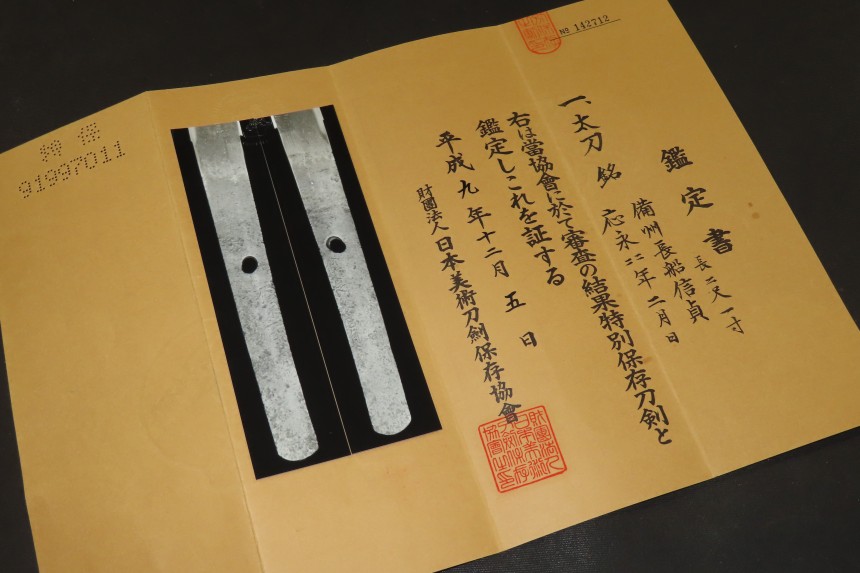 № 142712
鑑定書
一、太刀 銘 備州長船信貞
応永二二年二月日
長二尺一寸
右は當協會に於て審査の結果特別保存刀剣と
鑑定しこれを証する
平成九年十二月五日
財團法人日本美術刀剣保存協會
特保
91997011